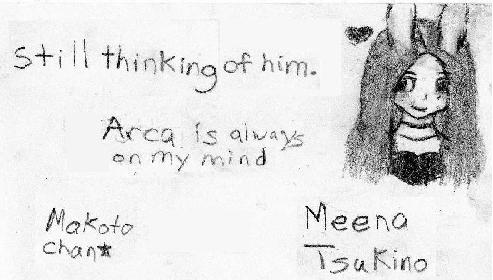 Still thinking of him.
Arca is always
on my mind
Makoto
chan★
Meena
Tsukino